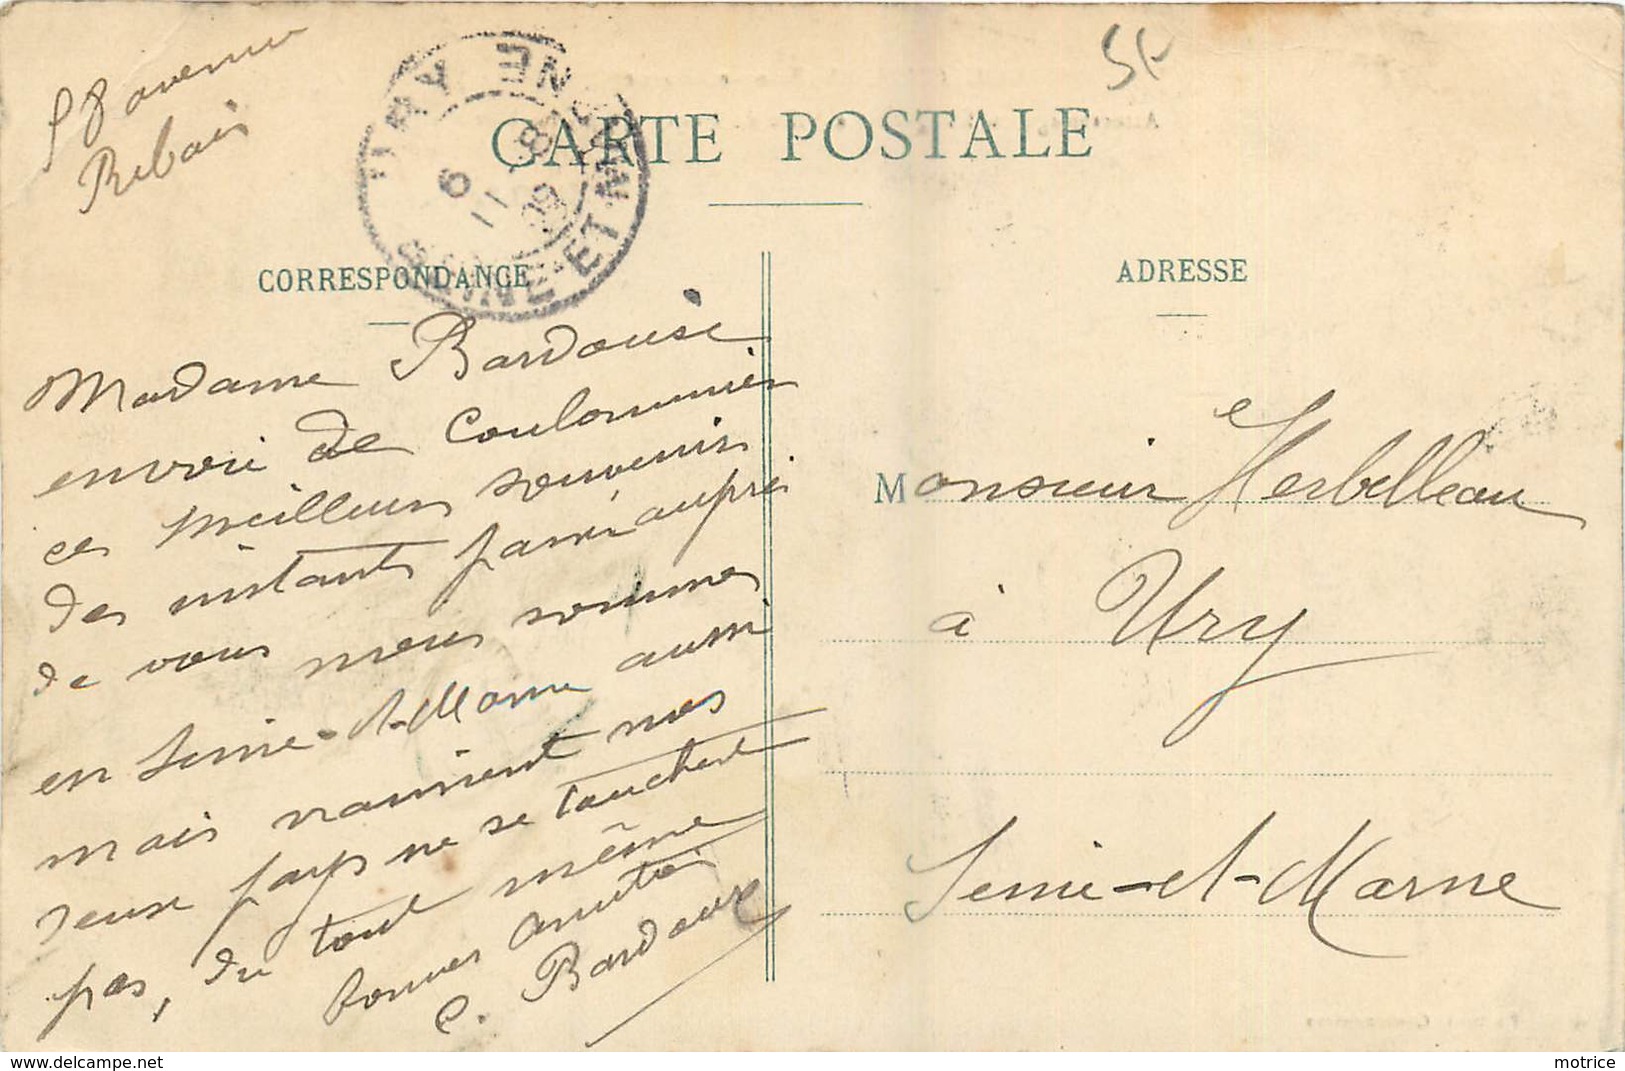 98 avenue
Rebais
5f
CARTE POSTALE
CORRESPONDANCE
ADRESSE
URY
SEINE-ET-MARNE
6
11
09
Madame Bardouse
envoie de Coulommiers
ces meilleurs souvenirs
des instants passés auprès
de vous nous sommes
en Seine-et-Marne aussi
mais vraiment nos
deux pays ne se touchent
pas, du tout même
bonnes amitiés
C. Bardouse
Monsieur Herbelleau
à Ury
Seine-et-Marne
motrice